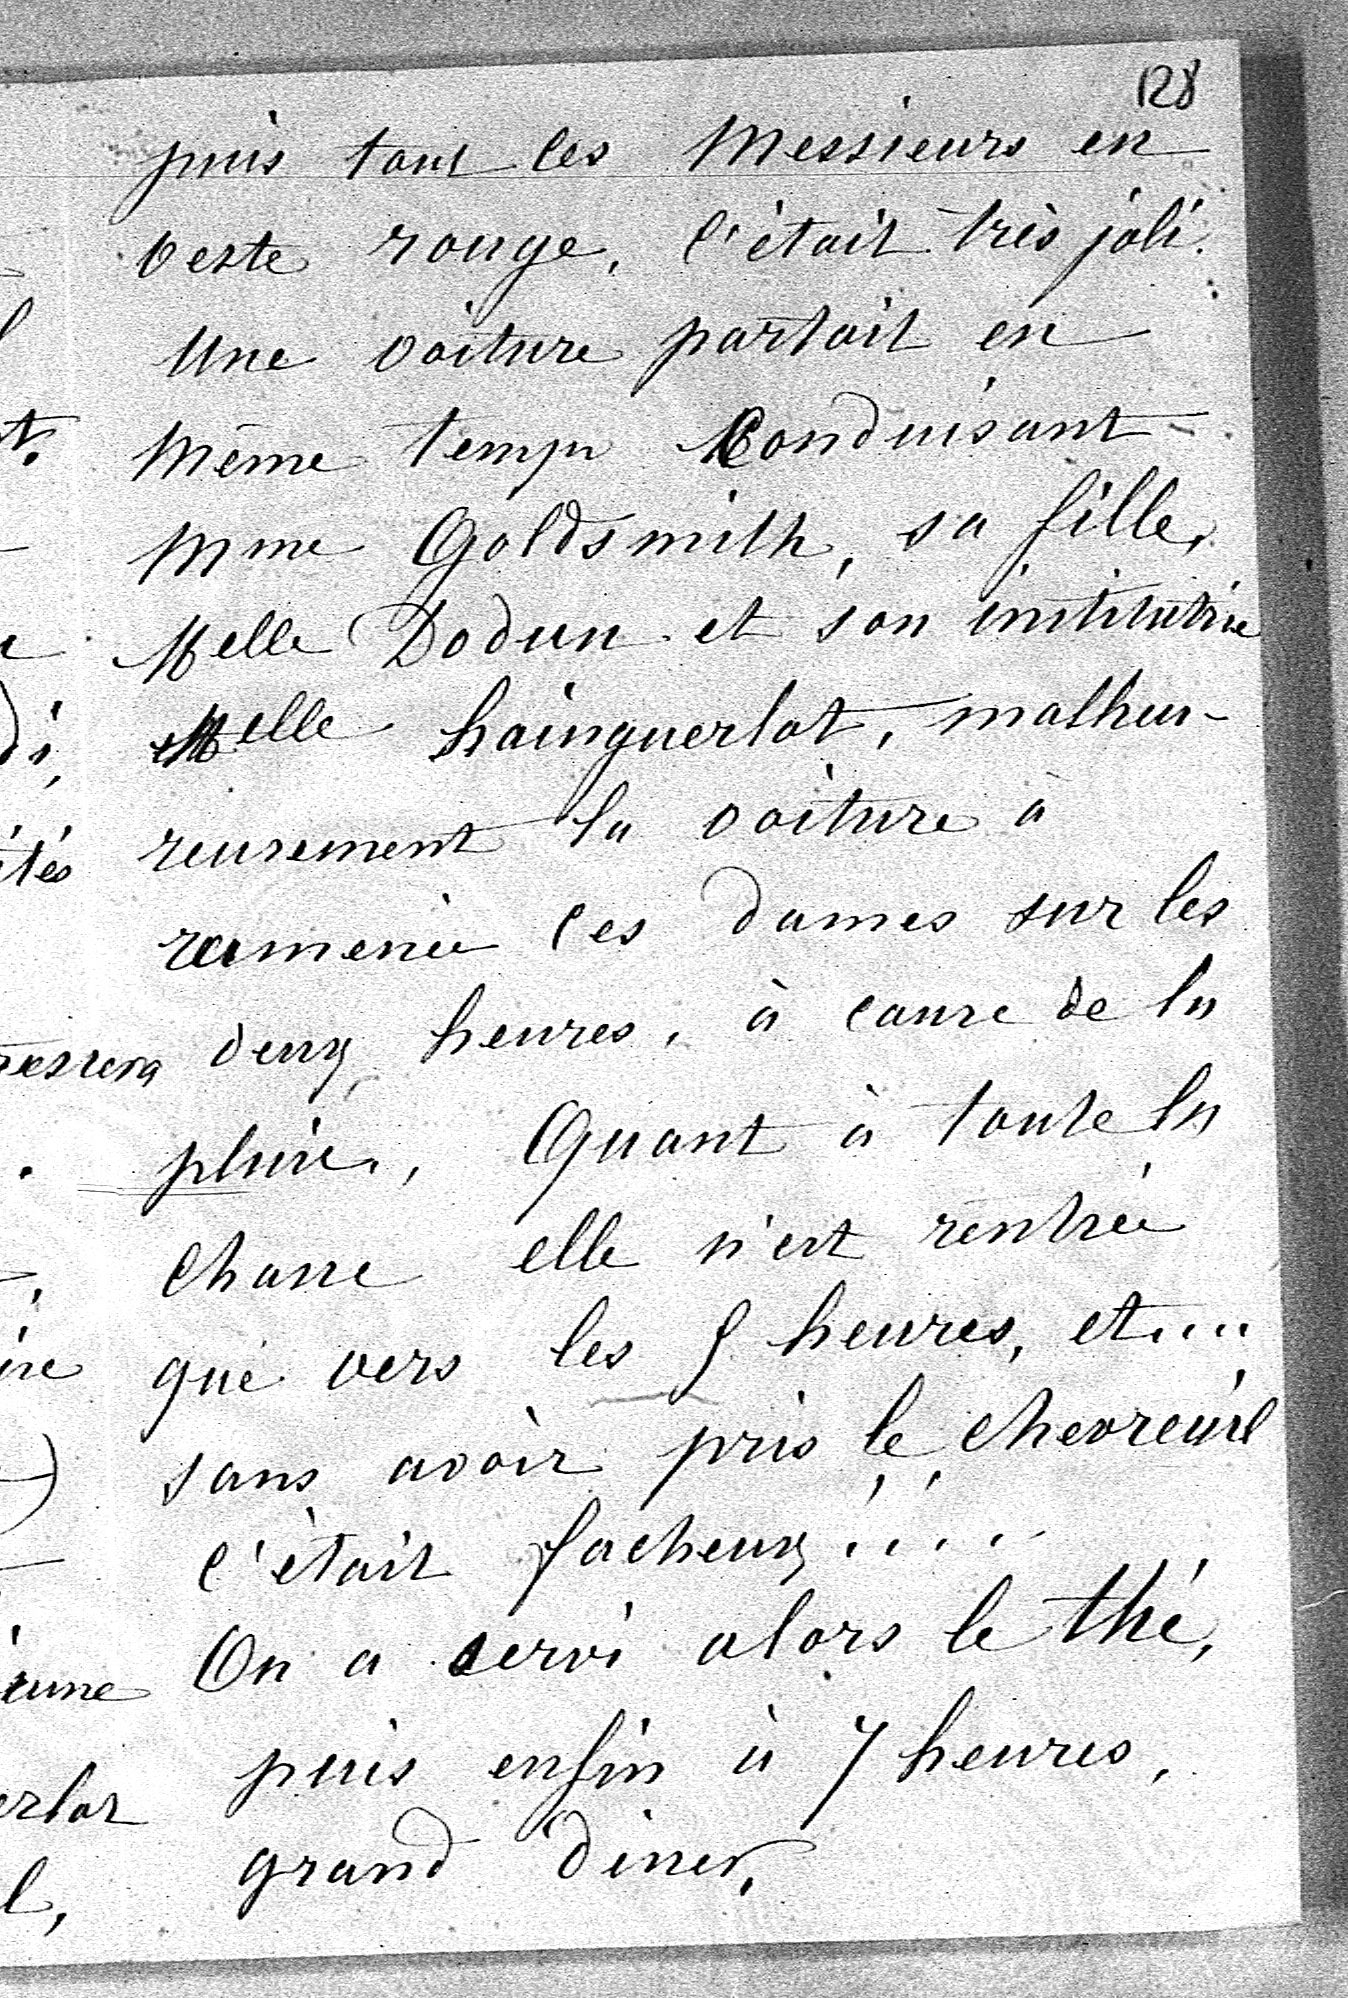 128
puis tous les Messieurs en
veste rouge, c'était très joli.
Une voiture partait en
même temps conduisant
Mme Goldsmith, sa fille,
Melle Dodun et son institutrice
Melle hainguerlot, malheu-
reusement la voiture à
ramenée ces dames sur les
deux heures, à cause de la
pluie, Quant à toute la
chasse elle n'est rentrée
que vers les 5 heures, et....
sans avoir pris le chevreuil
c'était facheux....
On a servi alors le thé,
puis enfin à 7 heures,
grand diner,